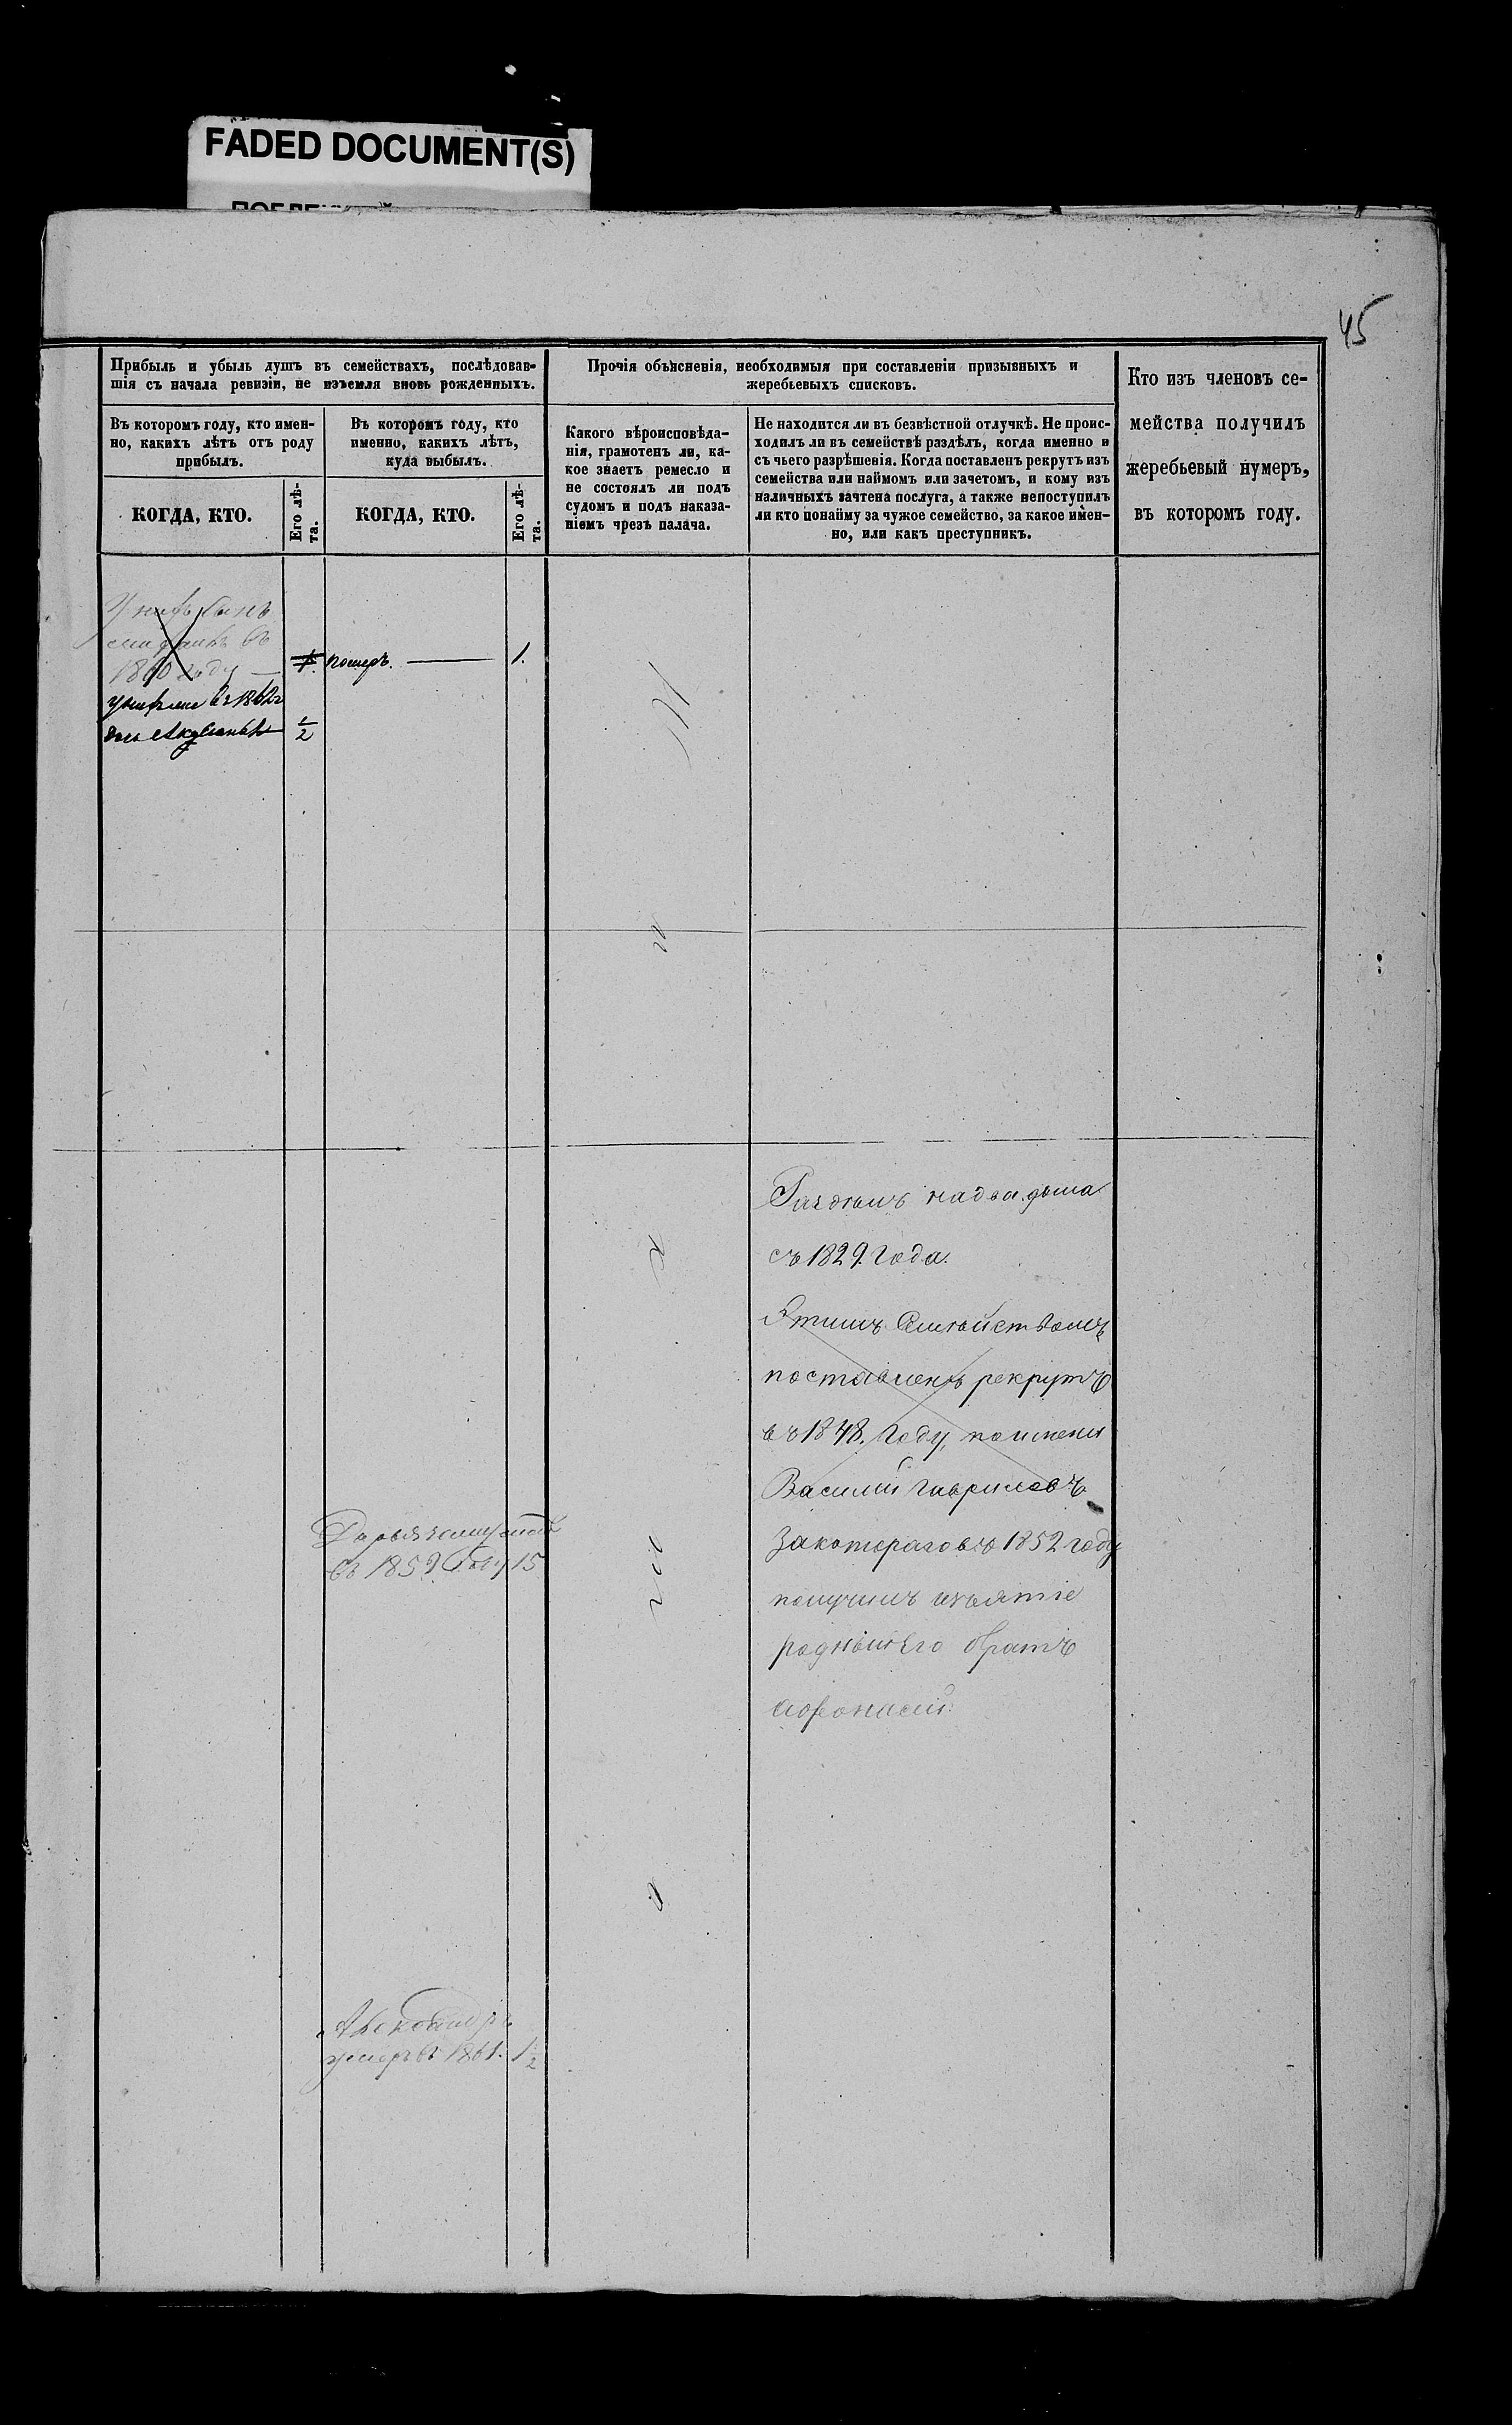 FADED DOCUMENT(S)
45
Прибыль и убыль душъ въ семействахъ, послѣдовав-
шія съ начала ревизіи, не изъемля вновь рожденныхъ.
Въ которомъ году, кто имен-
но, какихъ лѣтъ отъ роду
прибылъ.
КОГДА, КТО.
Его лѣ-
та.
Въ которомъ году, кто
именно, какихъ лѣтъ,
куда выбылъ.
КОГДА, КТО.
Его лѣ-
та.
Прочія объясненія, необходимыя при составленіи призывныхъ и
жеребьевыхъ списковъ.
Какого вѣроисповѣда-
нія, грамотенъ ли, ка-
кое знаетъ ремесло и
не состоялъ ли подъ
судомъ и подъ наказа-
ніемъ чрезъ палача.
Не находится ли въ безвѣстной отлучкѣ. Не проис-
ходилъ ли въ семействѣ раздѣлъ, когда именно и
съ чьего разрѣшенія. Когда поставленъ рекрутъ изъ
семейства или наймомъ или зачетомъ, и кому изъ
наличныхъ зачтена послуга, а также непоступилъ
ли кто понайму за чужое семейство, за какое имен-
но, или какъ преступникъ.
Кто изъ членовъ се-
мейства получилъ
жеребьевый нумеръ,
въ которомъ году.
сынъ
въ
1860 году
1. померъ. 1.
въ 1862
1/2
Раздѣлъ на два дыма
съ 1829. Года.
Этимъ Семѣйствомъ
поставленъ рекрутъ
въ 1848. Году,
Василій Гавриловъ
За котораго въ 1852 году
получилъ изъятіе
родный Его братъ
Афонасій.
Дарья замужъ
въ 1859 Году 15
Александръ
умеръ въ 1861. 1/2